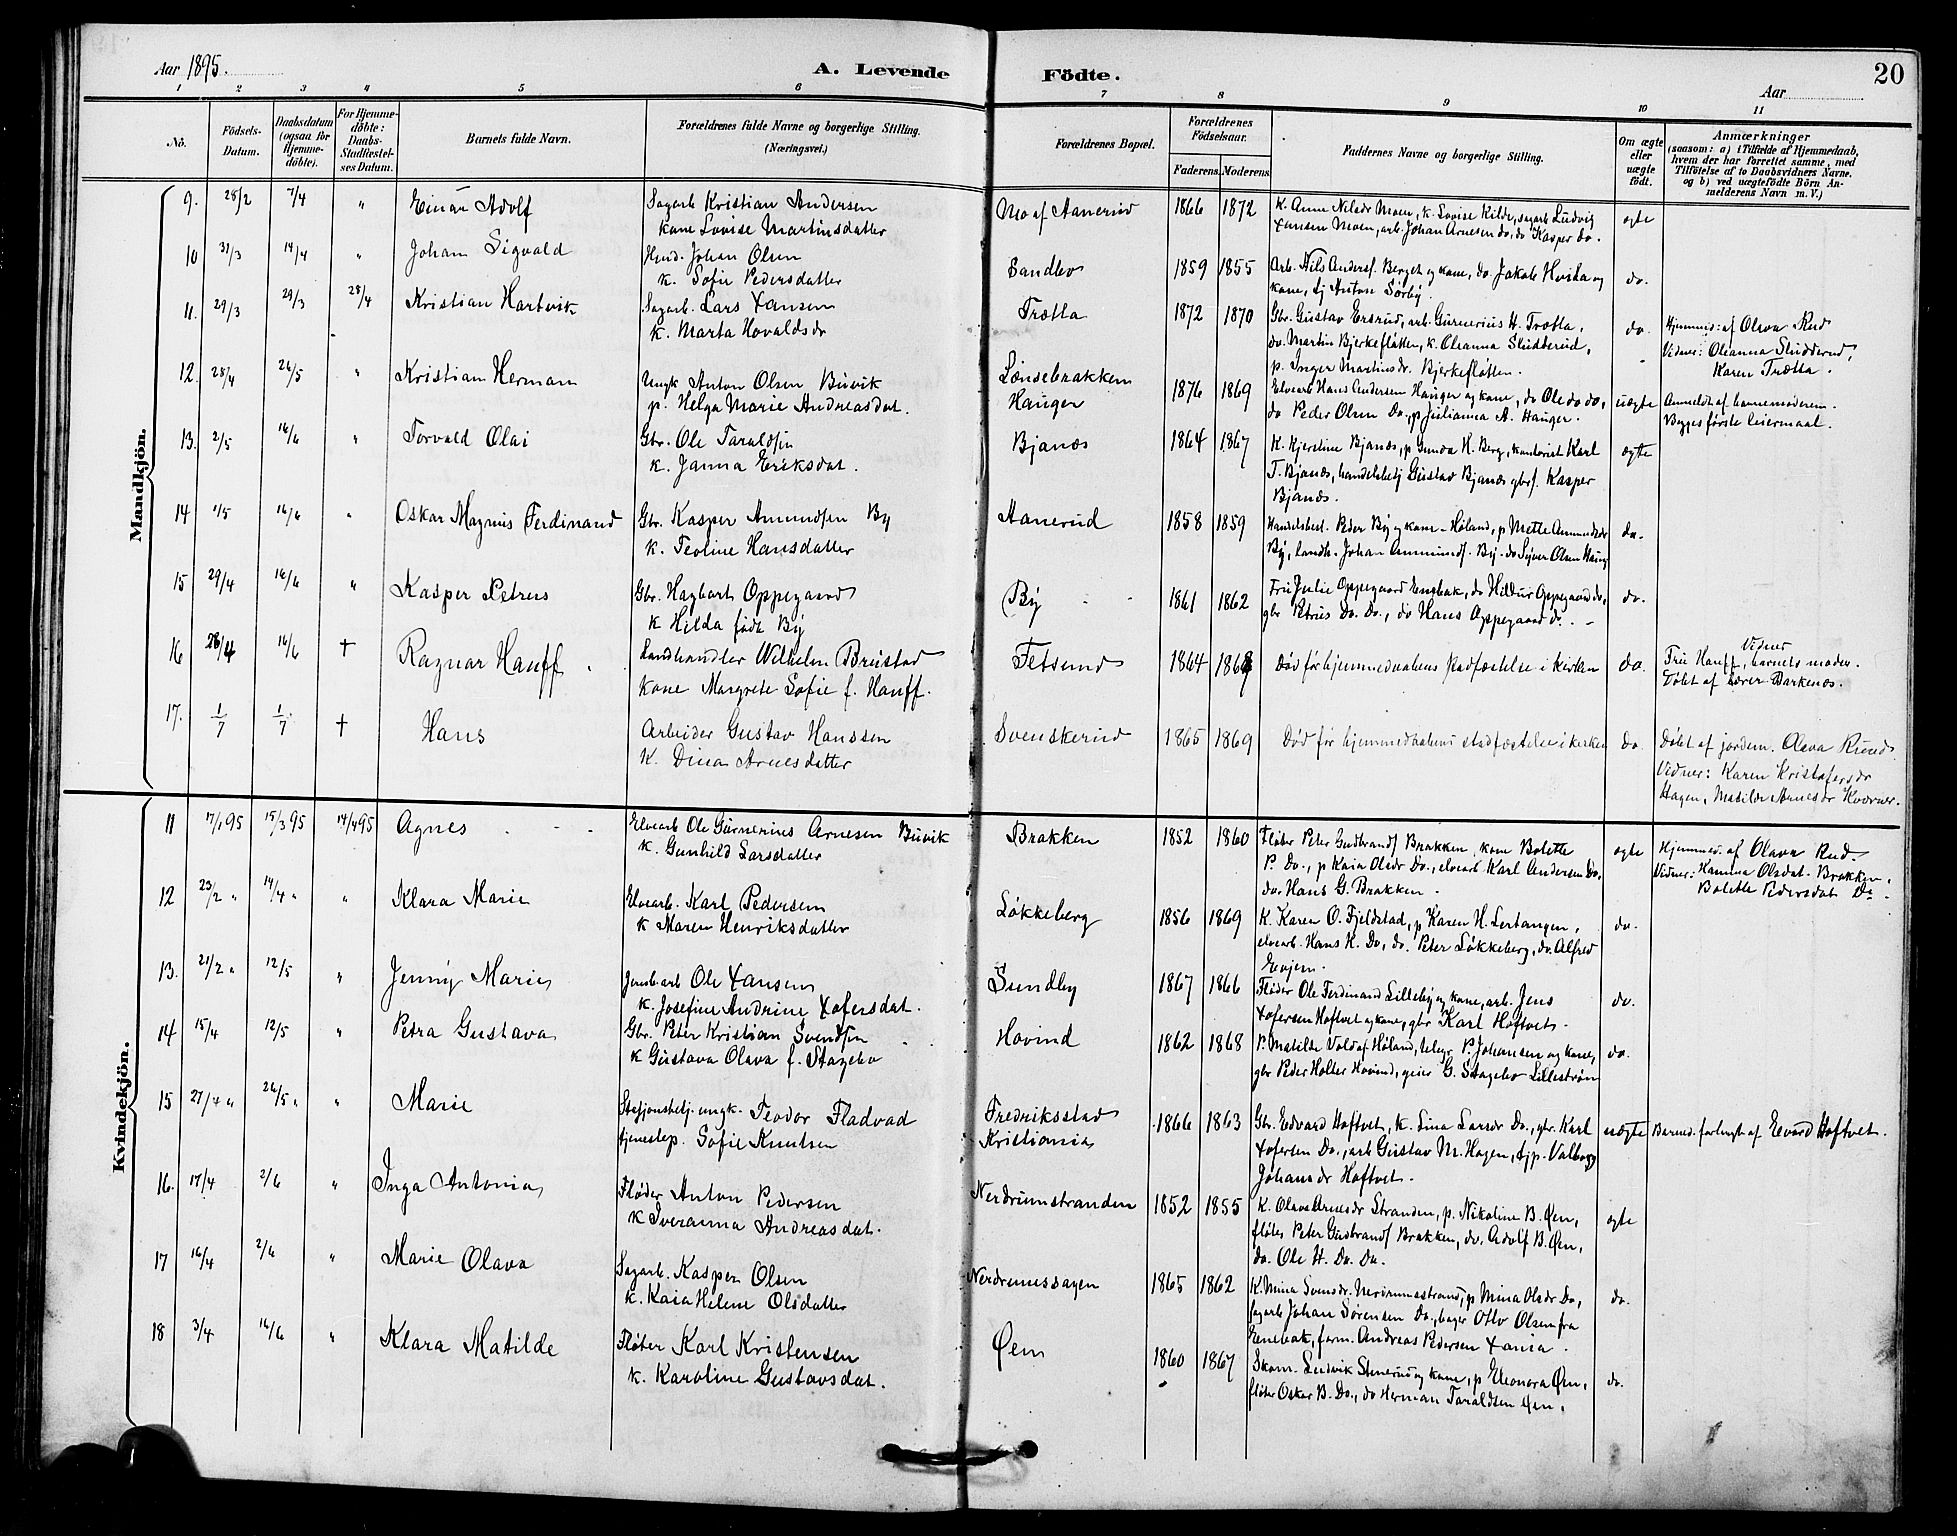 Aar 1895.
A. Levende Födte.
Aar
20
1 2 3 4 5 6 7 8 9 10 11
No.
Födsets-Datum.
Daabsdatum (ogsaa for Hjemmedöbte).
For Hjemmedöbte: Daabs-Stadfæstelses Datum.
Barnets fulde Navn.
Forældrenes fulde Navne og borgerlige Stilling.
(Næringsvei.)
Forældrenes Bopæl.
Forældrenes Födselsaar.
Faderens. Moderens.
Faddernes Navne og borgerlige Stilling.
Om ægte eller uægte födt.
Anmærkninger
(saasom: a) i Tilfælde af Hjemmedaab, hvem der har forrettet samme, med Tilföielse af to Daabsvidners Navne. og b) ved uægtefödte Börn Anmelderens Navn m. V.)
Mandkjön.
9. 28/2 7/4 " Einar Adolf Sagarb. Kristian Andersen Mo af Hanerud 1866 1872 K. Anne Nilsdr Moen, k. Lovise Kilde, sagarb Ludvig ægte
kone Lovise Martinsdatter Hansen Moen, arb. Johan Arnesen do, do Kasper do.
10 31/3 14/4 " Johan Sigvald Johan Olsen Sandbo 1859 1855 Arb. Nils Anders. Berget og kone, do. Jakob Hvila og do.
k. Sofie Pedersdatter kone, tj Anton Sörby.
11. 29/3 29/3 28/4 Kristian Hartvik Sagarb. Lars Hansen Trætta 1872 1870 Gbr. Gustav Ersrud, arb. Gurnerius H. Trætta, do. Hjemmed: af Olava Rud
k. Marta Hovaldsdr do. Martin Bjerkefløtten, k. Oleanna Sludderud, Vidner: Oleanna Sludderud,
p. Inger Martinsdr. Bjerkefløtten. Karen Trætta.
12. 28/4 26/5 " Kristian Herman Ungk Anton Olsen Buvik Lundebrakken 1876 1869 Elvearb Hans Andersen Hauger og kone, do Ole do do, uægte Anmeldt af barnemoderen.
p. Helga Marie Andreasdat. Hauger do Peder Olsen Do., p Julianna A. Hauger. Begges første leiermaal.
13. 2/5 16/6 " Torvald Olai Gbr. Ole Taraldsen Bjanes 1864 1867 K. Kjerstine Bjanæs, p Gunda H. Berg, kontorist Karl ægte
k. Janna Eriksdat. T. Bjanæs, handelsbetj Gustav Bjanæs gbrs. Kasper
Bjanæs.
14 1/5 16/6 " Oskar Magnus Ferdinand Gbr. Kasper Amundsen By Hanerud 1858 1859 Handelsbest. Peder By og kone - Høland, p Mette Amundsdr do.
k. Teoline Hansdatter By, landh. Johan Ammunds. By - do Syver Olsen Haug
15 29/4 16/6 " Kasper Petrus Gbr. Hagbart Oppegaard By 1861 1862 Fru Julie Oppegaard Enebak, do Hildur Oppegaard do, do.
k Hilda født By gbr Petrus Do. Do., do Hans Oppegaard do.
16 28/4 16/6 † Ragnar Hauff. Landhandler Wilhelm Brustad Fetsund 1864 Død før hjemmedaabens stadfæstelse i kirken do. Vidner
Kone Margrete Sofie f. Hauff. Fru Hauff, barnets moder.
Døbt af lærer Barkenæs.
17. 1/7 1/7 † Hans Arbeider Gustav Hanssen Svenskerud 1865 1869 Død før hjemmedaabens stadfæstelse i kirken do. Døbt af jordem. Olava Ruud.
K. Dina Arnesdatter Vidner: Karen Kristofersdr
Hagen, Matilde Arnesdr Kværner.
Kvindekjön.
11 17/1 95 15/3 95 14/4 95 Agnes Elvearb Ole Gurnerius Arnesen Buvik Brakken 1852 1860 Fløter Peter Gudbrands Brakken, kone Bolette ægte Hjemmed. af Olava Rud.
k. Gunhild Larsdatter P. Do., p Kaia Olsdr Do., elvearb Karl Andersen Do, Vidner: Hanna Olsdat. Brakken,
do. Hans G. Brakken. Bolette Pedersdat Do.
12 23/2 " 14/4 " " Klara Marie Elvearb. Karl Pedersen Løkkeberg 1856 1869 K. Karen O. Fjeldstad, p Karen H. Lertangen, do.
k Maren Henriksdatter elvearb. Hans K. Do, do. Peter Løkkeberg, do. Alfred
Evjen.
13. 21/2 " 12/5 " Jenny Marie Jernb arb Ole Hansen Sundby 1867 1866 Fløder Ole Ferdinand Lilleby og kone, arb. Jens do.
k. Josefine Andrine Xofersdat. Xofersen Hoftvet og kone, gbr Karl Hoftvet.
14 15/4 12/5 " Petra Gustava Gbr. Peter Kristian Svendsen Hovind 1862 1868 P. Matilde Vold af Høland, telegr. P. Johansen og kone, do.
k Gustava Olava f. Stagebo gbr Peder Holter Hovind, geier G. Stagebo Lillestrøm
15 27/4 " 26/5 " " Marie Stasjonsbetj. ungk. Teodor Fladvad Fredriksstad 1866 1863 Gbr. Edvard Hoftvet, k. Lina Larsdr Do., gbr. Karl uægte Barned. forlangt af Edvard Hoftvet.
tjenestep. Sofie Knutsen Kristiania Xofersen Do., arb Gustav M. Hagen, tjp. Valborg
Johansdr Hoftvet.
16. 17/4 2/6 " Inga Antonia Fløder Anton Pedersen Nerdrumstranden 1852 1855 K. Olava Arnesdr Stranden, p. Nikoline B. Øen, ægte
k Iveranna Andreasdat. fløter Peter Gudbrands Brakken, do. Adolf B. Øen,
do. Ole H. Do. Do.
17 16/4 2/6 " Marie Olava Sagarb. Kasper Olsen Nerdrumssagen 1865 1862 K. Mina Svensdr. Nerdrumsstrand, p Mina Olsdr Do, do.
k. Kaia Helene Olsdatter sagarb Johan Sørensen Do., bager Otto Olsen fra
Enebak, form. Andreas Pedersen Xania.
18 3/4 16/6 " Klara Matilde Fløter Karl Kristensen Øen 1860 1867 Skom. Ludvik Stenerud og kone, p Eleonora Øen, do.
k. Karoline Gustavsdat. fløter Oskar B. Do., do Herman Taraldsen Øen.